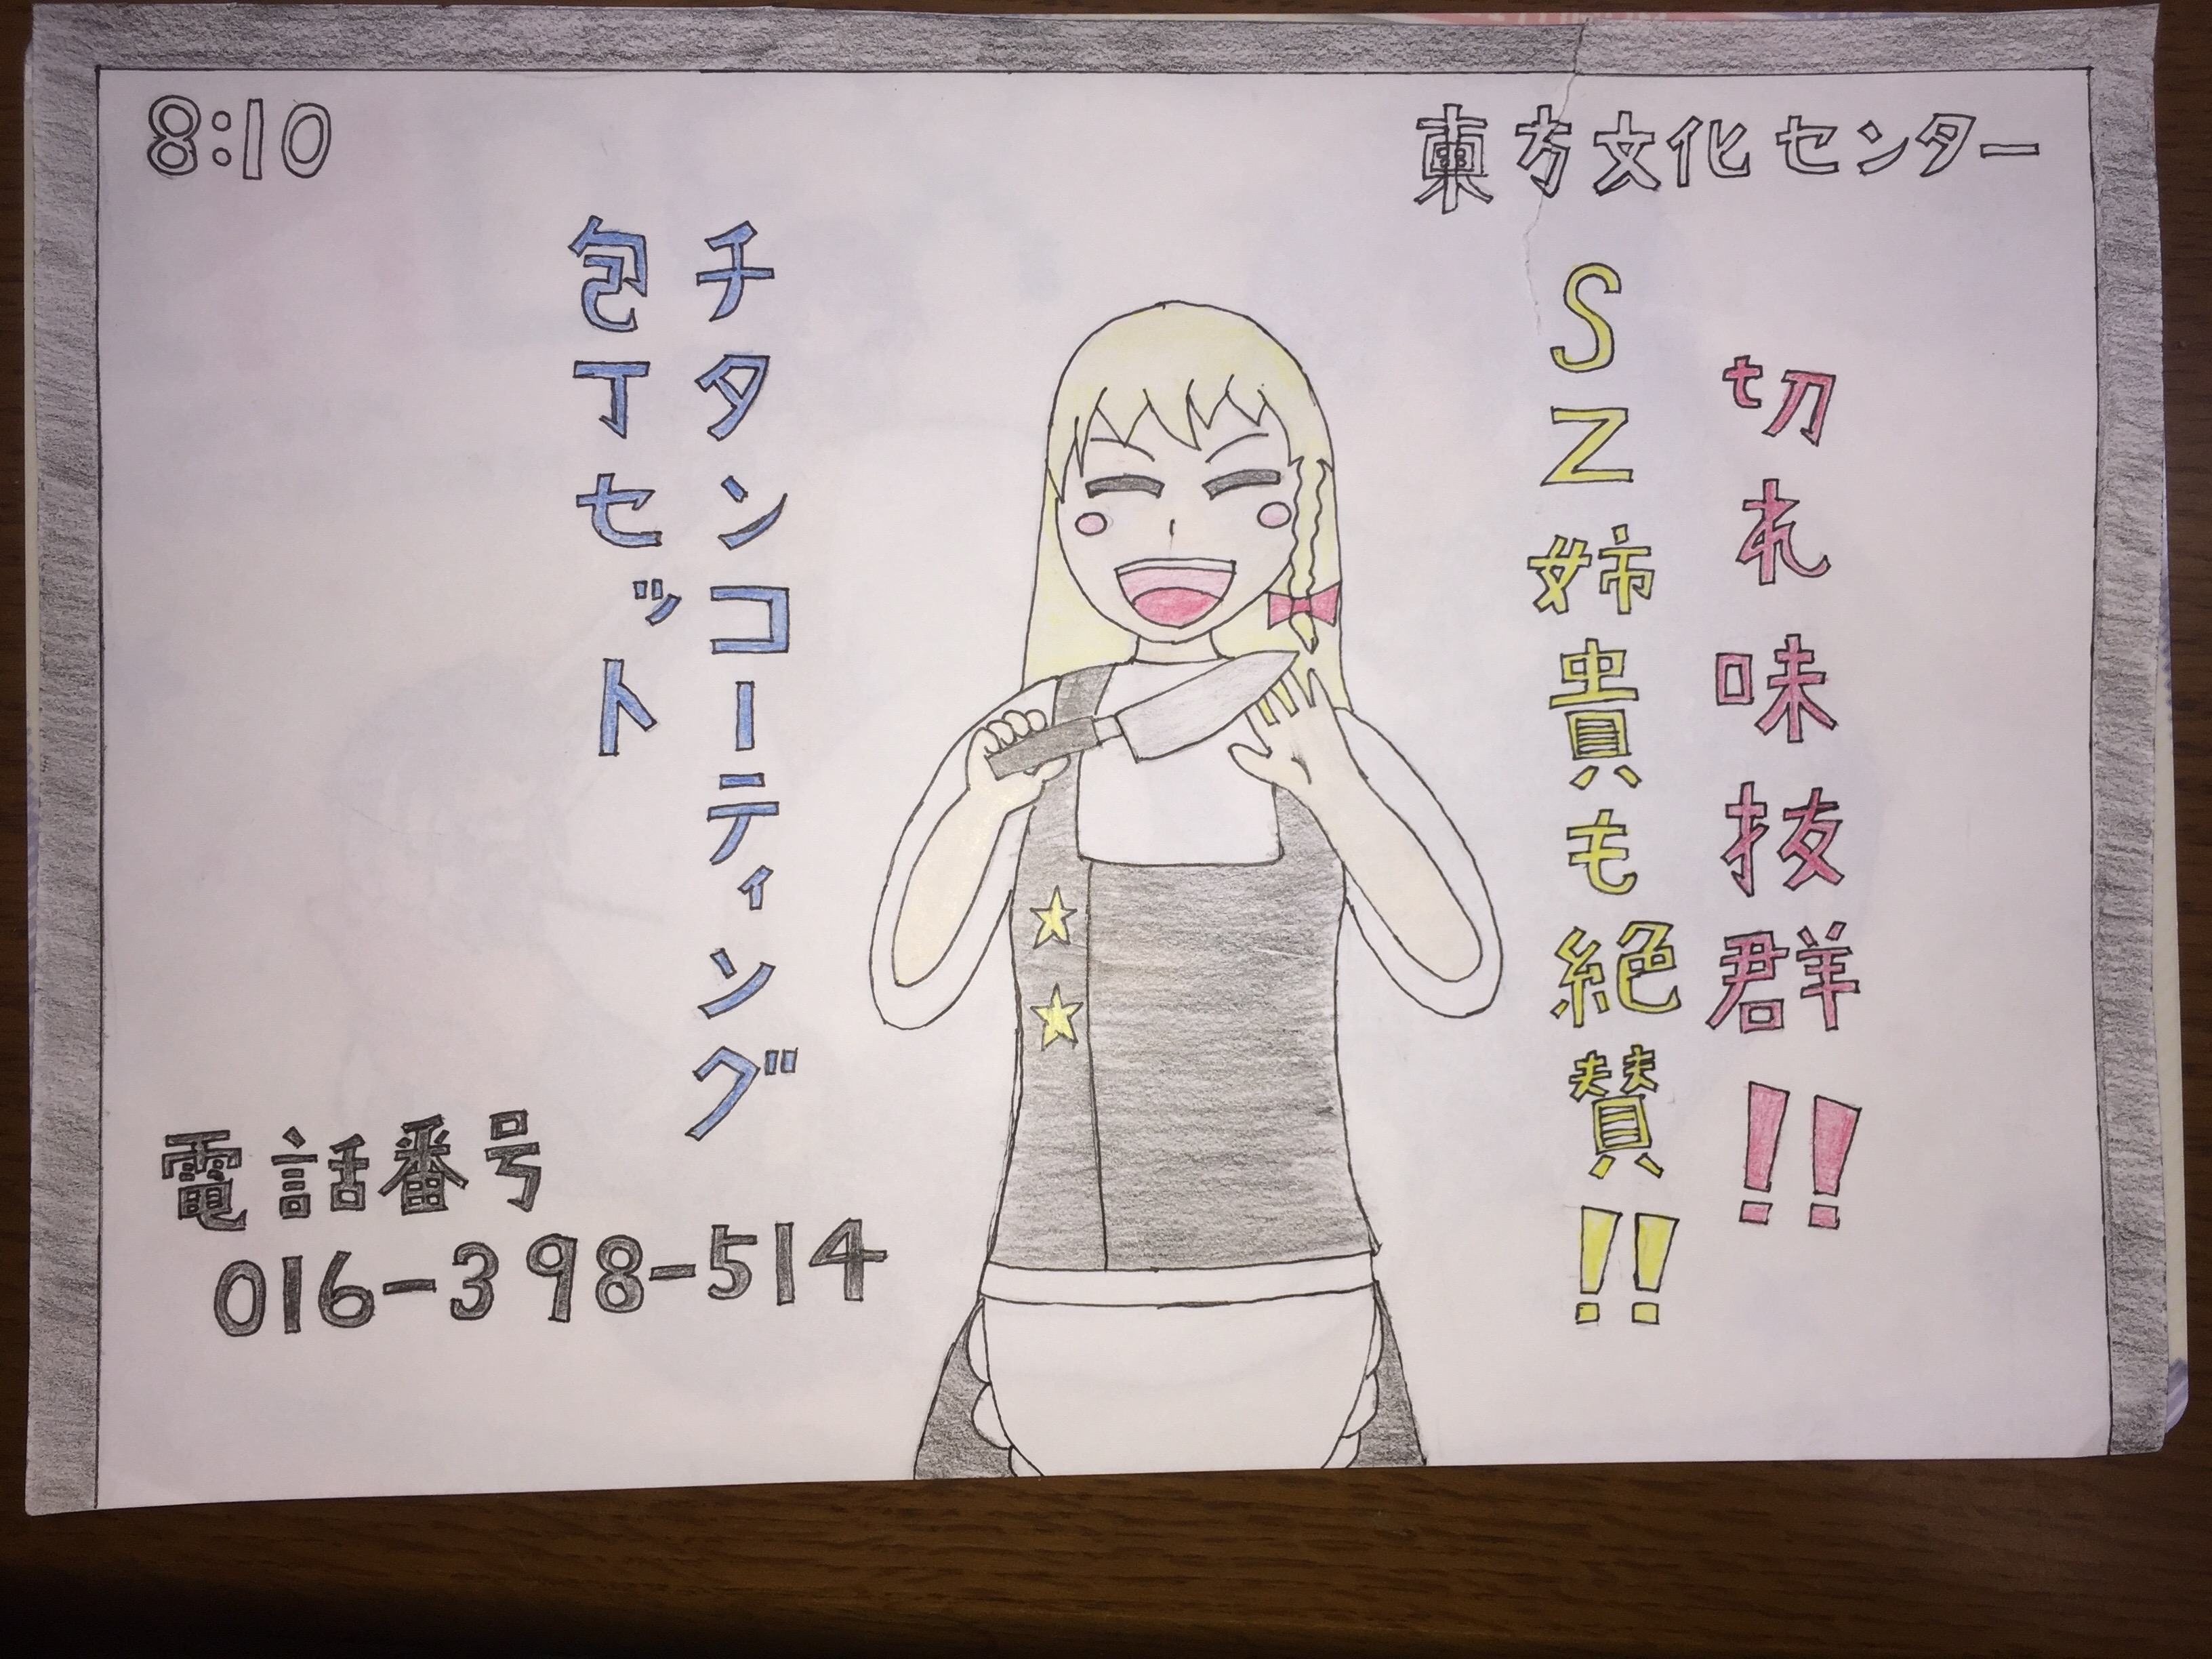 8:10
東方文化センター
切れ味抜群!!
SZ姉貴も絶賛!!
チタンコーティング
包丁セット
電話番号
016-398-514